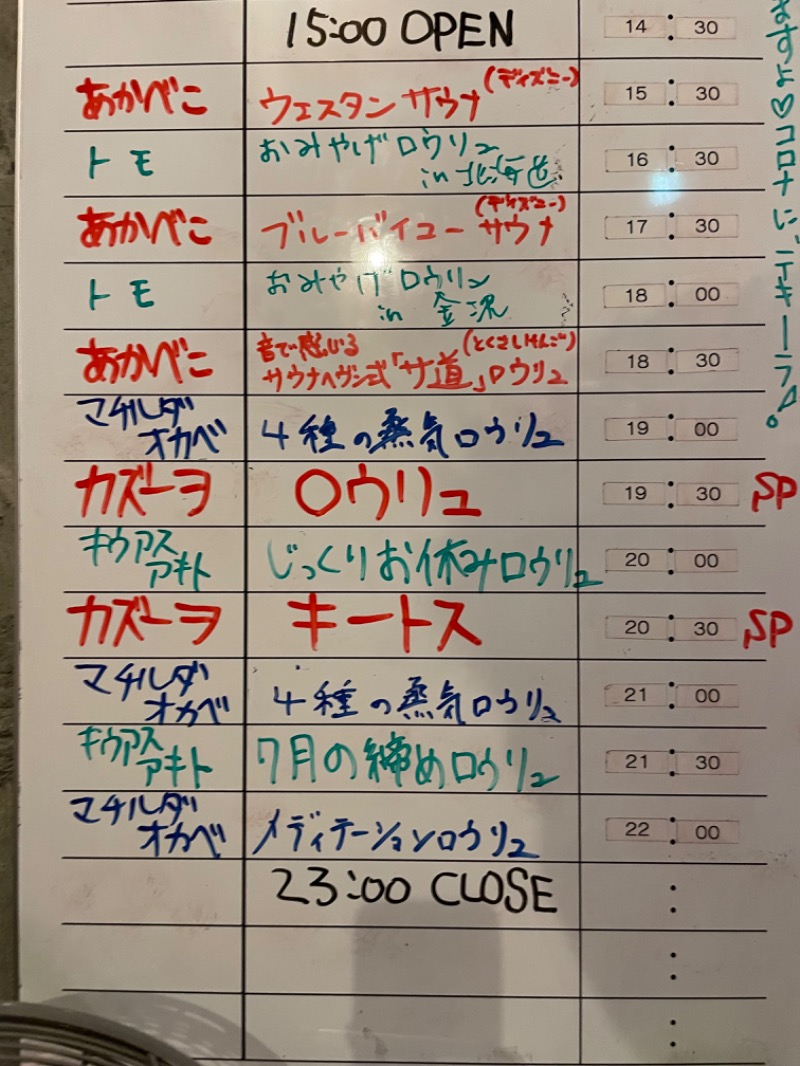 15:00 OPEN 14:30
あかべこ ウェスタンサウナ(ディズニー) 15:30
トモ おみやげロウリュ 16:30
in 北海道
あかべこ ブルーバイユーサウナ(ディズニー) 17:30
トモ おみやげロウリュ 18:00
in 金沢
あかべこ 音で感じる(とくさしけんご) 18:30
サウナヘヴン式「サ道」ロウリュ
マチルダ 4種の蒸気ロウリュ 19:00
オカベ
カズーヲ ロウリュ 19:30 SP
キウアス じっくりお休みロウリュ 20:00
アキト
カズーヲ キートス 20:30 SP
マチルダ 4種の蒸気ロウリュ 21:00
オカベ
キウアス 7月の締めロウリュ 21:30
アキト
マチルダ メディテーションロウリュ 22:00
オカベ
23:00 CLOSE :
:
:
ますよ♡コロナに
テキーラ